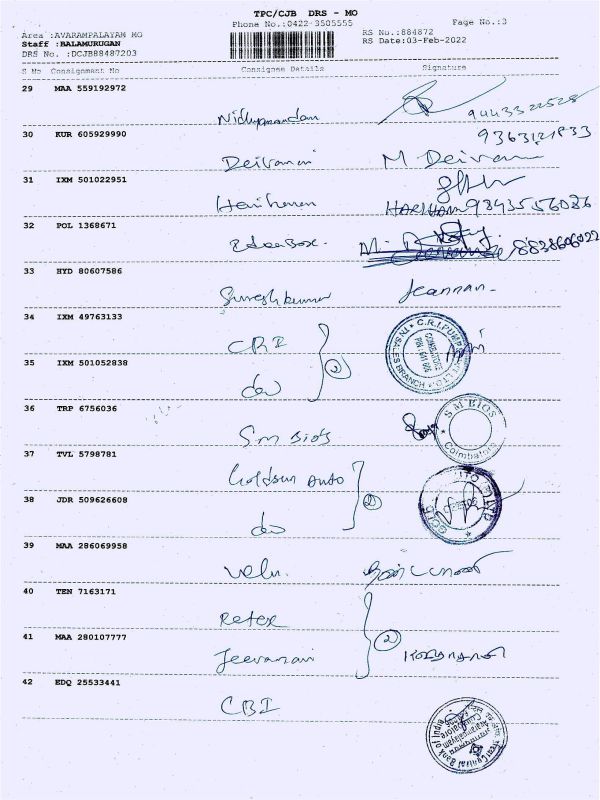 TPC/CJB DRS - MO
Phone No.:0422-3505555 Page No.:3
Area :AVARAMPALAYAM MO RS No.:884872
Staff :BALAMURUGAN RS Date:03-Feb-2022
DRS No. :DCJB88487203
S No Consignment No Consignee Details Signature
29 MAA 559192972
9443322528
30 KUR 605929990
9363121833
Deivanai M Deivanai
31 IXM 501022951
Hariharan HARIHARAN 9343556026
32 POL 1368671
8838606022
33 HYD 80607586
Sureshkumar Jeannan
34 IXM 49763133
CRI (2) C.R.I PUMPS SALES BRANCH COIMBATORE
35 IXM 501052838
do
36 TRP 6756036
SM Bios S M BIOS Coimbatore
37 TVL 5798781
Goldsun Auto (2)
38 JDR 509626608
do
39 MAA 286069958
Velu.
40 TEN 7163171
Retex (2)
41 MAA 280107777
Jeevamani
42 EDQ 25533441
CBI Central Bank of India